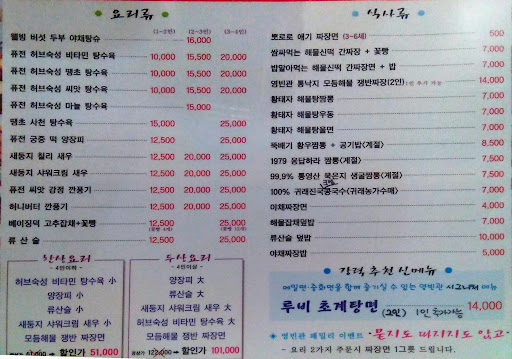 요리류
(1~2인) (2~3인) (3~4인)
웰빙 버섯 두부 야채탕슈 16,000
퓨전 허브숙성 비타민 탕수육 10,000 15,500 20,000
퓨전 허브숙성 땡초 탕수육 10,000 15,500 20,000
퓨전 허브숙성 씨앗 탕수육 10,000 15,500 20,000
퓨전 허브숙성 마늘 탕수육 15,000
땡초 사천 탕수육 15,000 25,000
퓨전 궁중 떡 양장피 12,500 25,000
새둥지 칠리 새우 12,500 20,000 25,000
새둥지 샤워크림 새우 12,500 20,000 25,000
퓨전 씨앗 강정 깐풍기 12,500 20,000 25,000
허니버터 깐풍기 12,500 20,000 25,000
베이징덕 고추잡채+꽃빵 12,500 25,000
류 산 슬 12,500 25,000
한상요리
-4인이하-
허브숙성 비타민 탕수육 小
양장피 小
류산슬 小
새둥지 샤워크림 새우 小
모듬해물 쟁반 짜장면
할인가 51,000
두상요리
-4인이상-
양장피 大
류산슬 大
새둥지 샤워크림 새우 大
허브숙성 비타민 탕수육 大
모듬해물 쟁반 짜장면
정상가 122,000 → 할인가 101,000
식사류
뽀로로 애기 짜장면 (3~6세) 500
쌈싸먹는 해물신떡 간짜장 + 꽃빵 7,000
밥말아먹는 해물신떡 간짜장면 + 밥 7,000
영빈관 통낙지 모듬해물 쟁반짜장(2인) 1인 추가 가능 14,000
황태자 해물탕짬뽕 7,000
황태자 해물탕우동 7,000
황태자 해물탕울면 7,000
뚝배기 황우짬뽕 + 공기밥<계절> 8,500
1979 응답하라 짬뽕<계절> 7,500
99,9% 통영산 묵은지 생굴짬뽕<계절> 7,500
100% 귀래진국콩국수(귀래농가수매) 7,000
야채짜장면 4,000
해물잡채덮밥 7,000
류산슬 덮밥 10,000
야채짜장밥 5,000
강력 추천 신메뉴
메밀면·중화면을 함께 즐기실 수 있는 영빈관 시그니처 메뉴
루비 초계탕면 (2인) 1인 추가가능 14,000
영빈관 패밀리 이벤트 · 묻지도 따지지도 않고 ·
- 요리 2가지 주문시 짜장면 1그릇 드립니다.